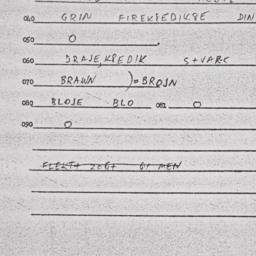 040 GRIN FIREKPEDIKPE DIN
050 O
060 DRAJE,KPEDIK S+VARC
070 BRAWN )=BROJN
080 BLOJE BLO 081 O
090 O